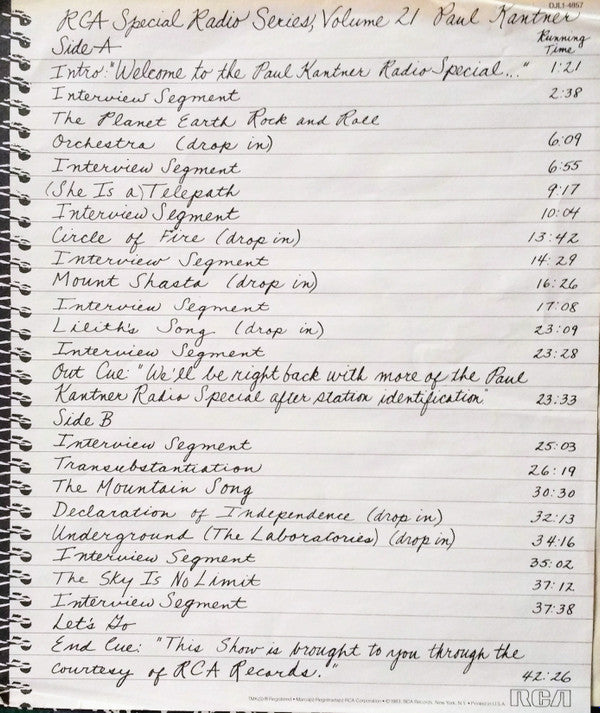 DJL1-4657
RCA Special Radio Series, Volume 21 Paul Kantner
Side A Running Time
Intro: "Welcome to the Paul Kantner Radio Special..." 1:21
Interview Segment 2:38
The Planet Earth Rock and Roll
Orchestra (drop in) 6:09
Interview Segment 6:55
(She Is a) Telepath 9:17
Interview Segment 10:04
Circle of Fire (drop in) 13:42
Interview Segment 14:29
Mount Shasta (drop in) 16:26
Interview Segment 17:08
Lilith's Song (drop in) 23:09
Interview Segment 23:28
Out Cue: "We'll be right back with more of the Paul
Kantner Radio Special after station identification" 23:33
Side B
Interview Segment 25:03
Transubstantiation 26:19
The Mountain Song 30:30
Declaration of Independence (drop in) 32:13
Underground (The Laboratories) (drop in) 34:16
Interview Segment 35:02
The Sky Is No Limit 37:12
Interview Segment 37:38
Let's Go
End Cue: "This Show is brought to you through the
courtesy of RCA Records." 42:26
TMK(s) ® Registered • Marca(s) Registrada(s) RCA Corporation • © 1983, RCA Records, New York, N.Y. • Printed in U.S.A.
RCA